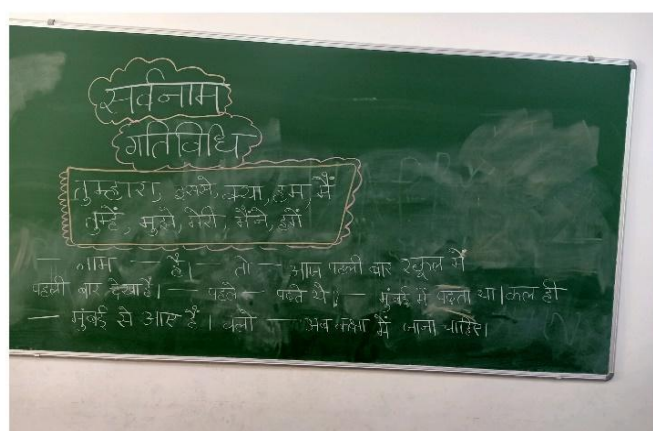 सर्वनाम
गतिविधि
तुम्हारा, इसमे, क्या, हम, मैं
तुम्हें, मुझे, मेरी, मैंने, हमें
— नाम — है। — तो — आज पहली बार स्कूल में
पहली बार देखा है। — पहले — पढ़ते थे। — मुंबई में पढ़ता था। कल ही
— मुंबई से आए है। चलो — अब कक्षा में जाना चाहिए।